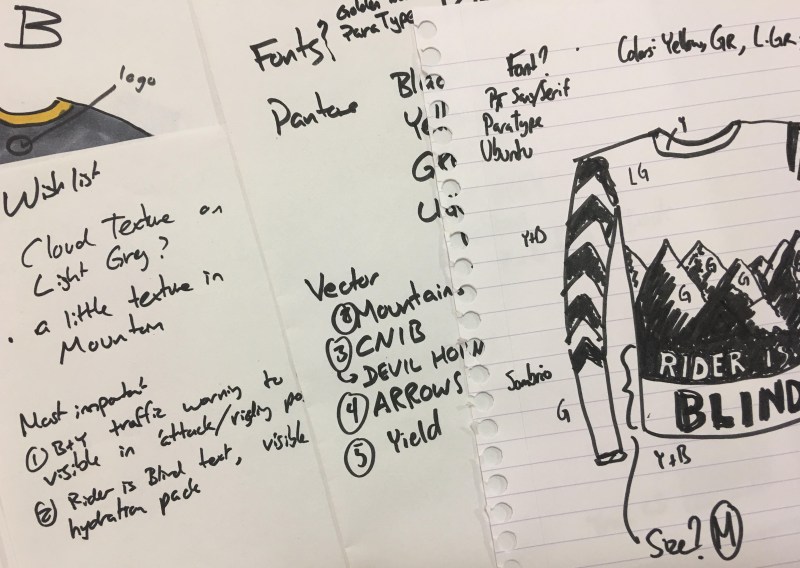 B
logo
Wish list
Cloud Texture on
Light Grey?
• a little texture in
Mountain
Most important
① B+Y traffic warning to
visible in attack/riding po
② Rider is Blind text, visible
hydration pack
ParaType
Fonts?
Pantone
Blin
Yell
Gr
Vector
Mountain
③ CNIB
DEVIL HORN
④ ARROWS
⑤ Yield
Font?
PT San/Serif
ParaType
Ubuntu
Colors: Yellow, GR, L.GR
Y
LG
Y+B
G
G
G
RIDER IS
BLIND
G
Y+B
Size? M